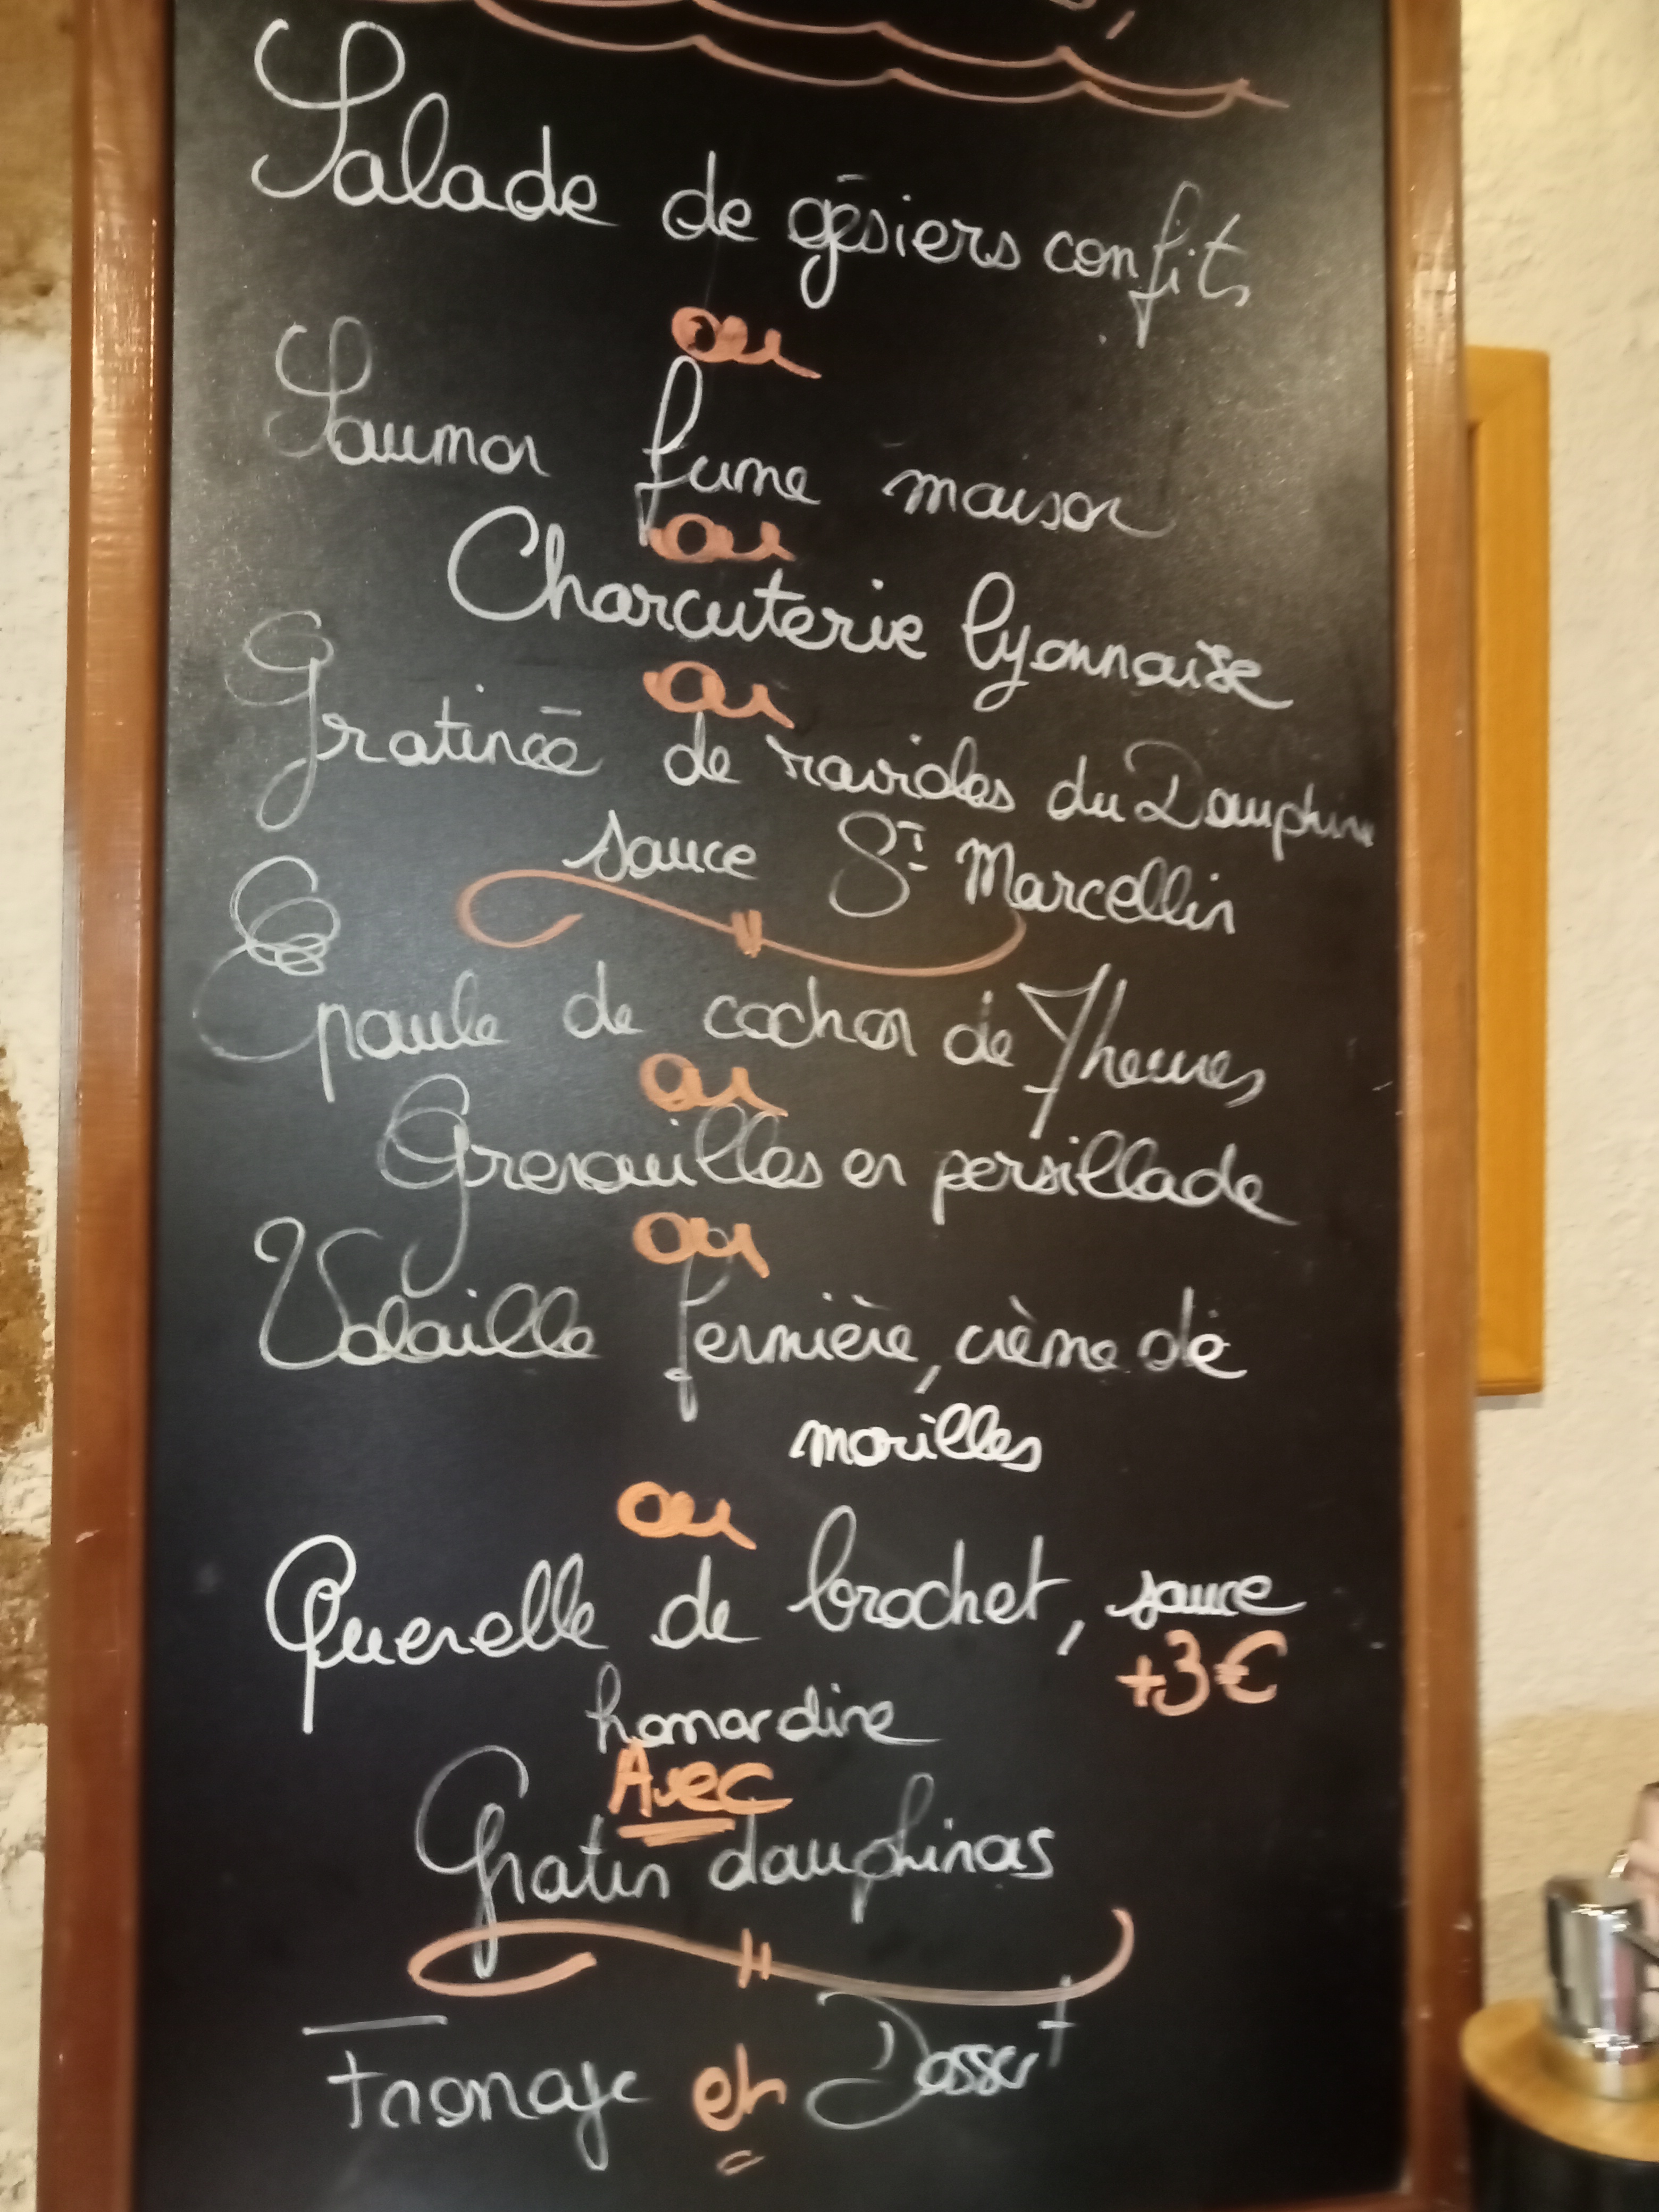 Salade de gésiers confits
ou
Saumon fumé maison
ou
Charcuterie lyonnaise
ou
Gratinée de ravioles du Dauphiné
sauce St Marcellin
Epaule de cochon de 7 heures
ou
Grenouilles en persillade
ou
Volaille fermière, crème de
morilles
ou
Quenelle de brochet, sauce
+3€
homardine
Avec
Gratin dauphinois
Fromage et Dessert